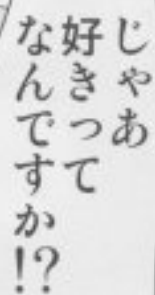 じゃあ
好きって
なんですか!?